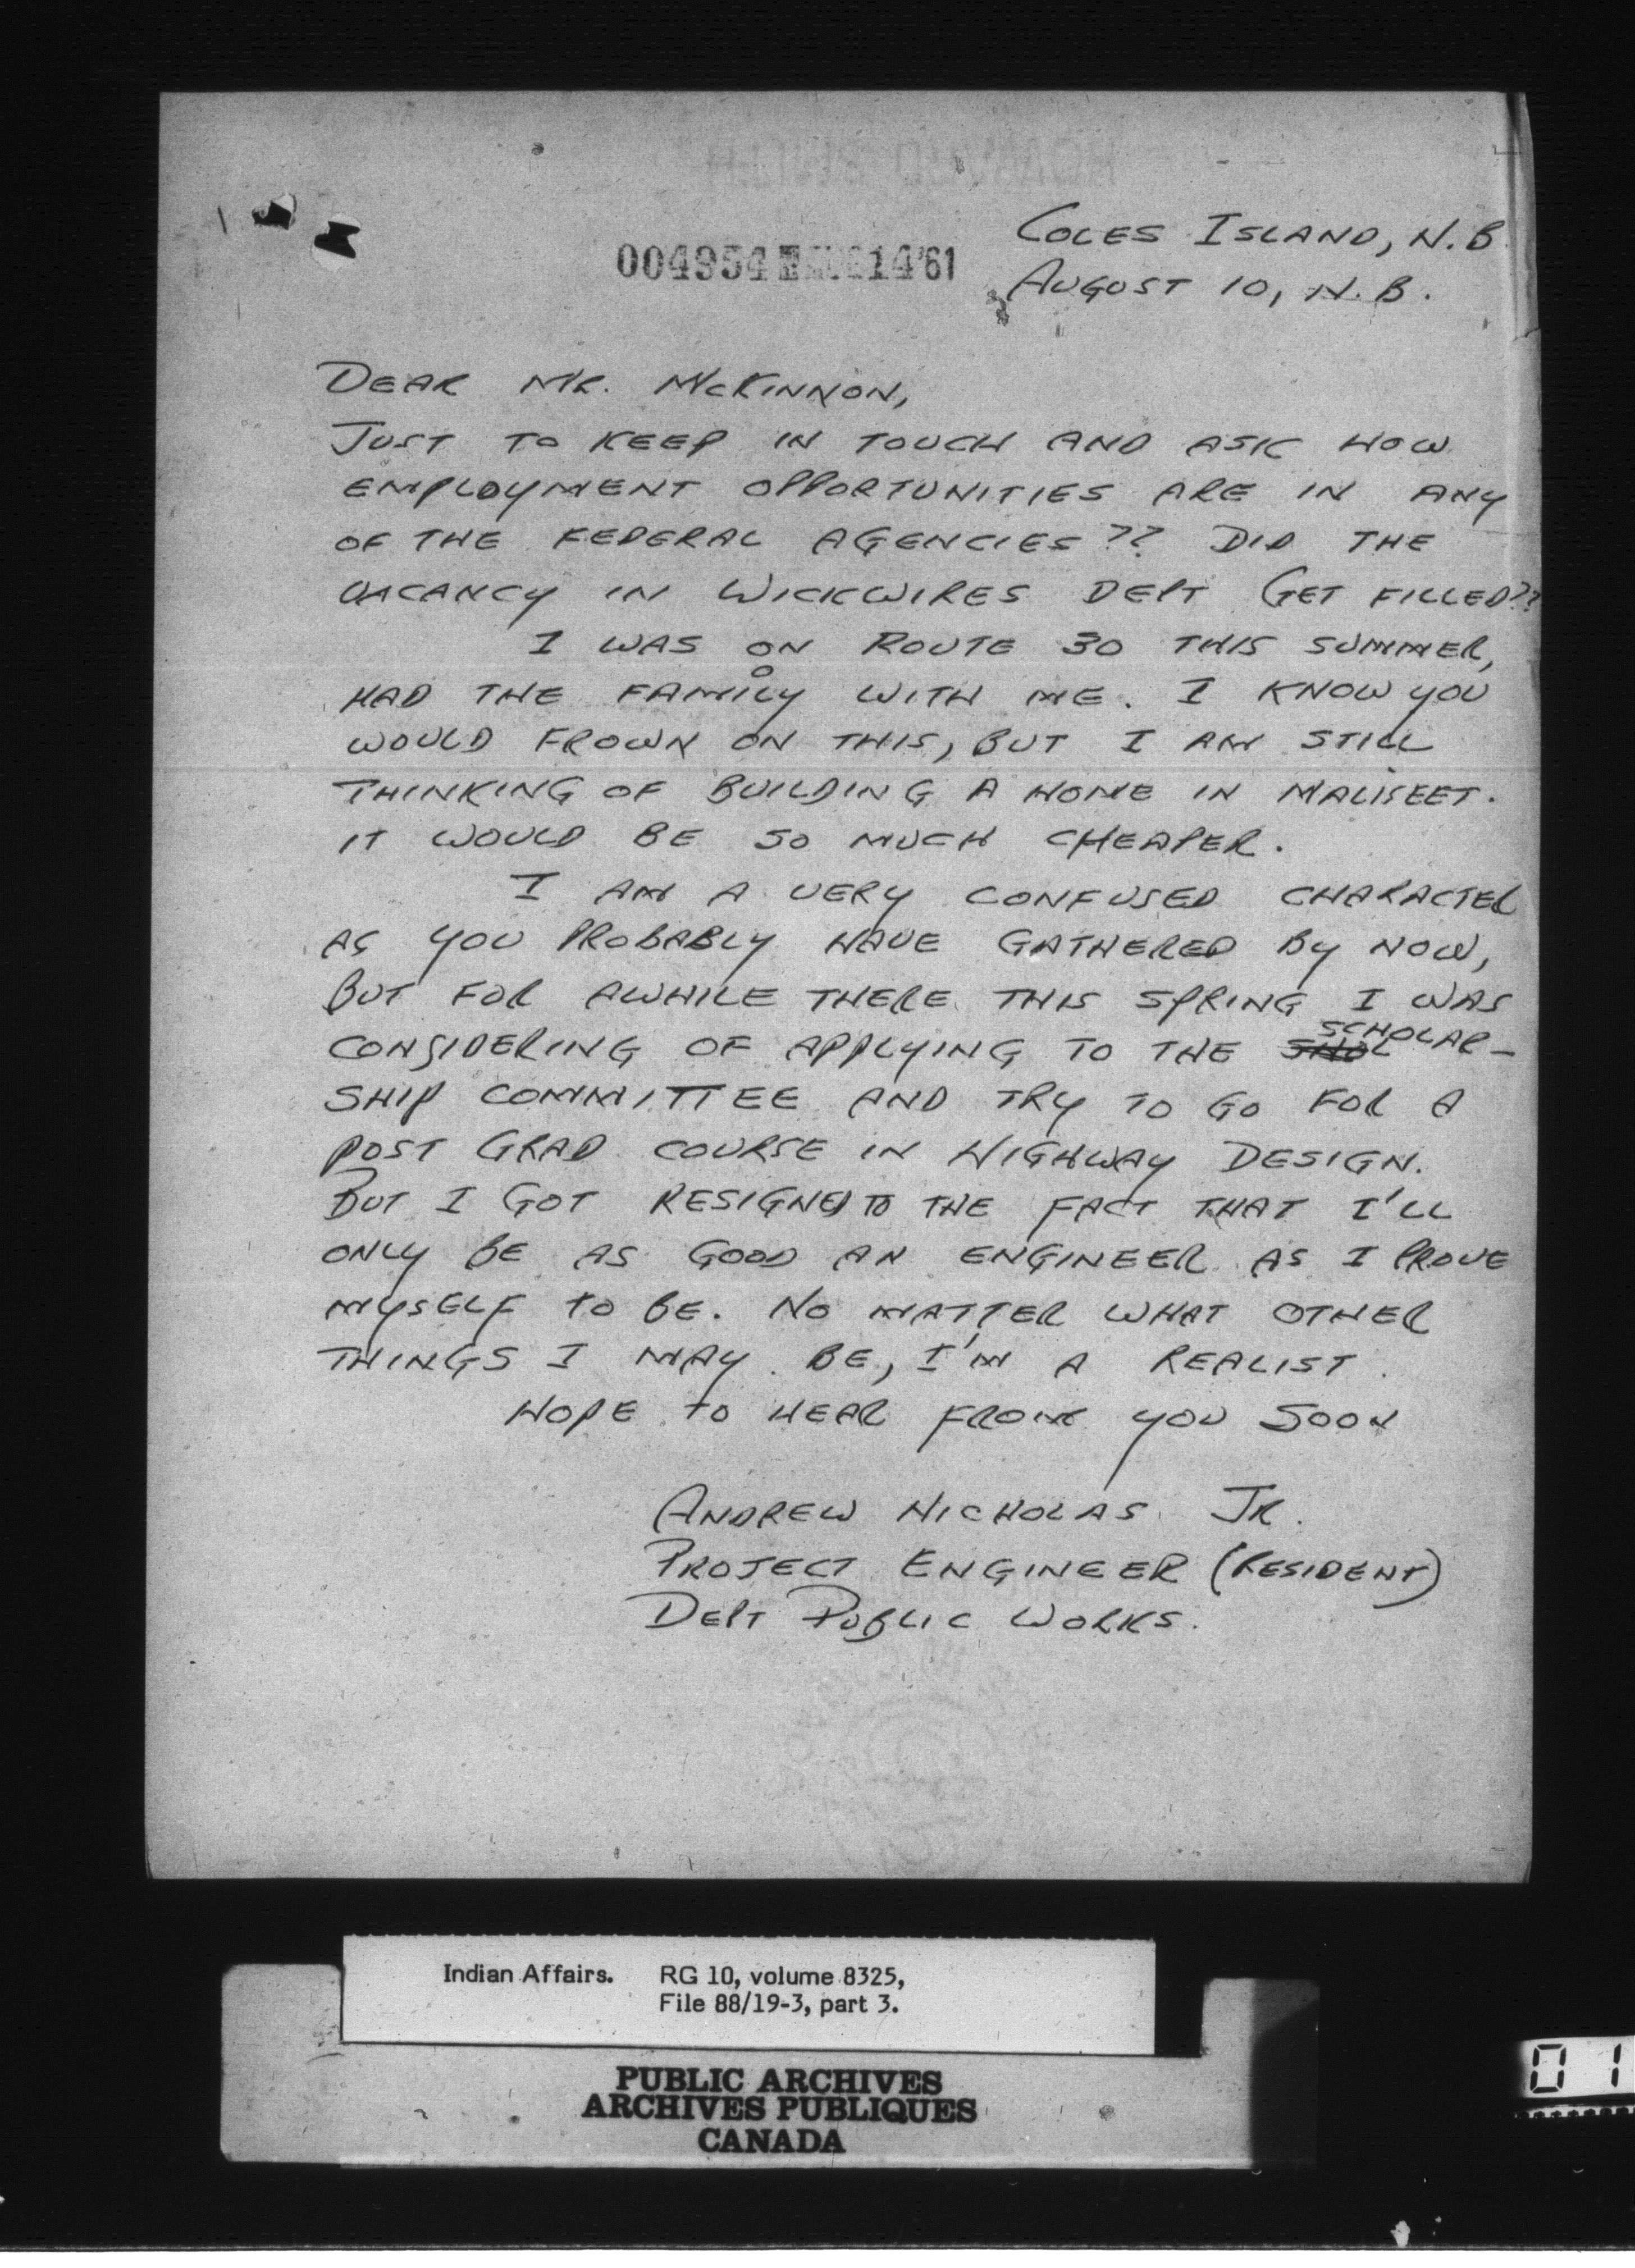 COLES ISLAND, N.B.
004954 14 '61
AUGUST 10, N.B.
DEAR MR. McKINNON,
JUST TO KEEP IN TOUCH AND ASK HOW
EMPLOYMENT OPPORTUNITIES ARE IN ANY
OF THE FEDERAL AGENCIES?? DID THE
VACANCY IN WICKWIRES DEPT GET FILLED??
I WAS ON ROUTE 30 THIS SUMMER,
HAD THE FAMILY WITH ME. I KNOW YOU
WOULD FROWN ON THIS, BUT I AM STILL
THINKING OF BUILDING A HOME IN MALISEET.
IT WOULD BE SO MUCH CHEAPER.
I AM A VERY CONFUSED CHARACTER
AS YOU PROBABLY HAVE GATHERED BY NOW,
BUT FOR AWHILE THERE THIS SPRING I WAS
CONSIDERING OF APPLYING TO THE SCHOLAR-
SHIP COMMITTEE AND TRY TO GO FOR A
POST GRAD COURSE IN HIGHWAY DESIGN.
BUT I GOT RESIGNED TO THE FACT THAT I'LL
ONLY BE AS GOOD AN ENGINEER AS I PROVE
MYSELF TO BE. NO MATTER WHAT OTHER
THINGS I MAY BE, I'M A REALIST.
HOPE TO HEAR FROM YOU SOON
ANDREW NICHOLAS JR.
PROJECT ENGINEER (RESIDENT)
DEPT PUBLIC WORKS.
Indian Affairs. RG 10, volume 8325,
File 88/19-3, part 3.
PUBLIC ARCHIVES
ARCHIVES PUBLIQUES
CANADA
01